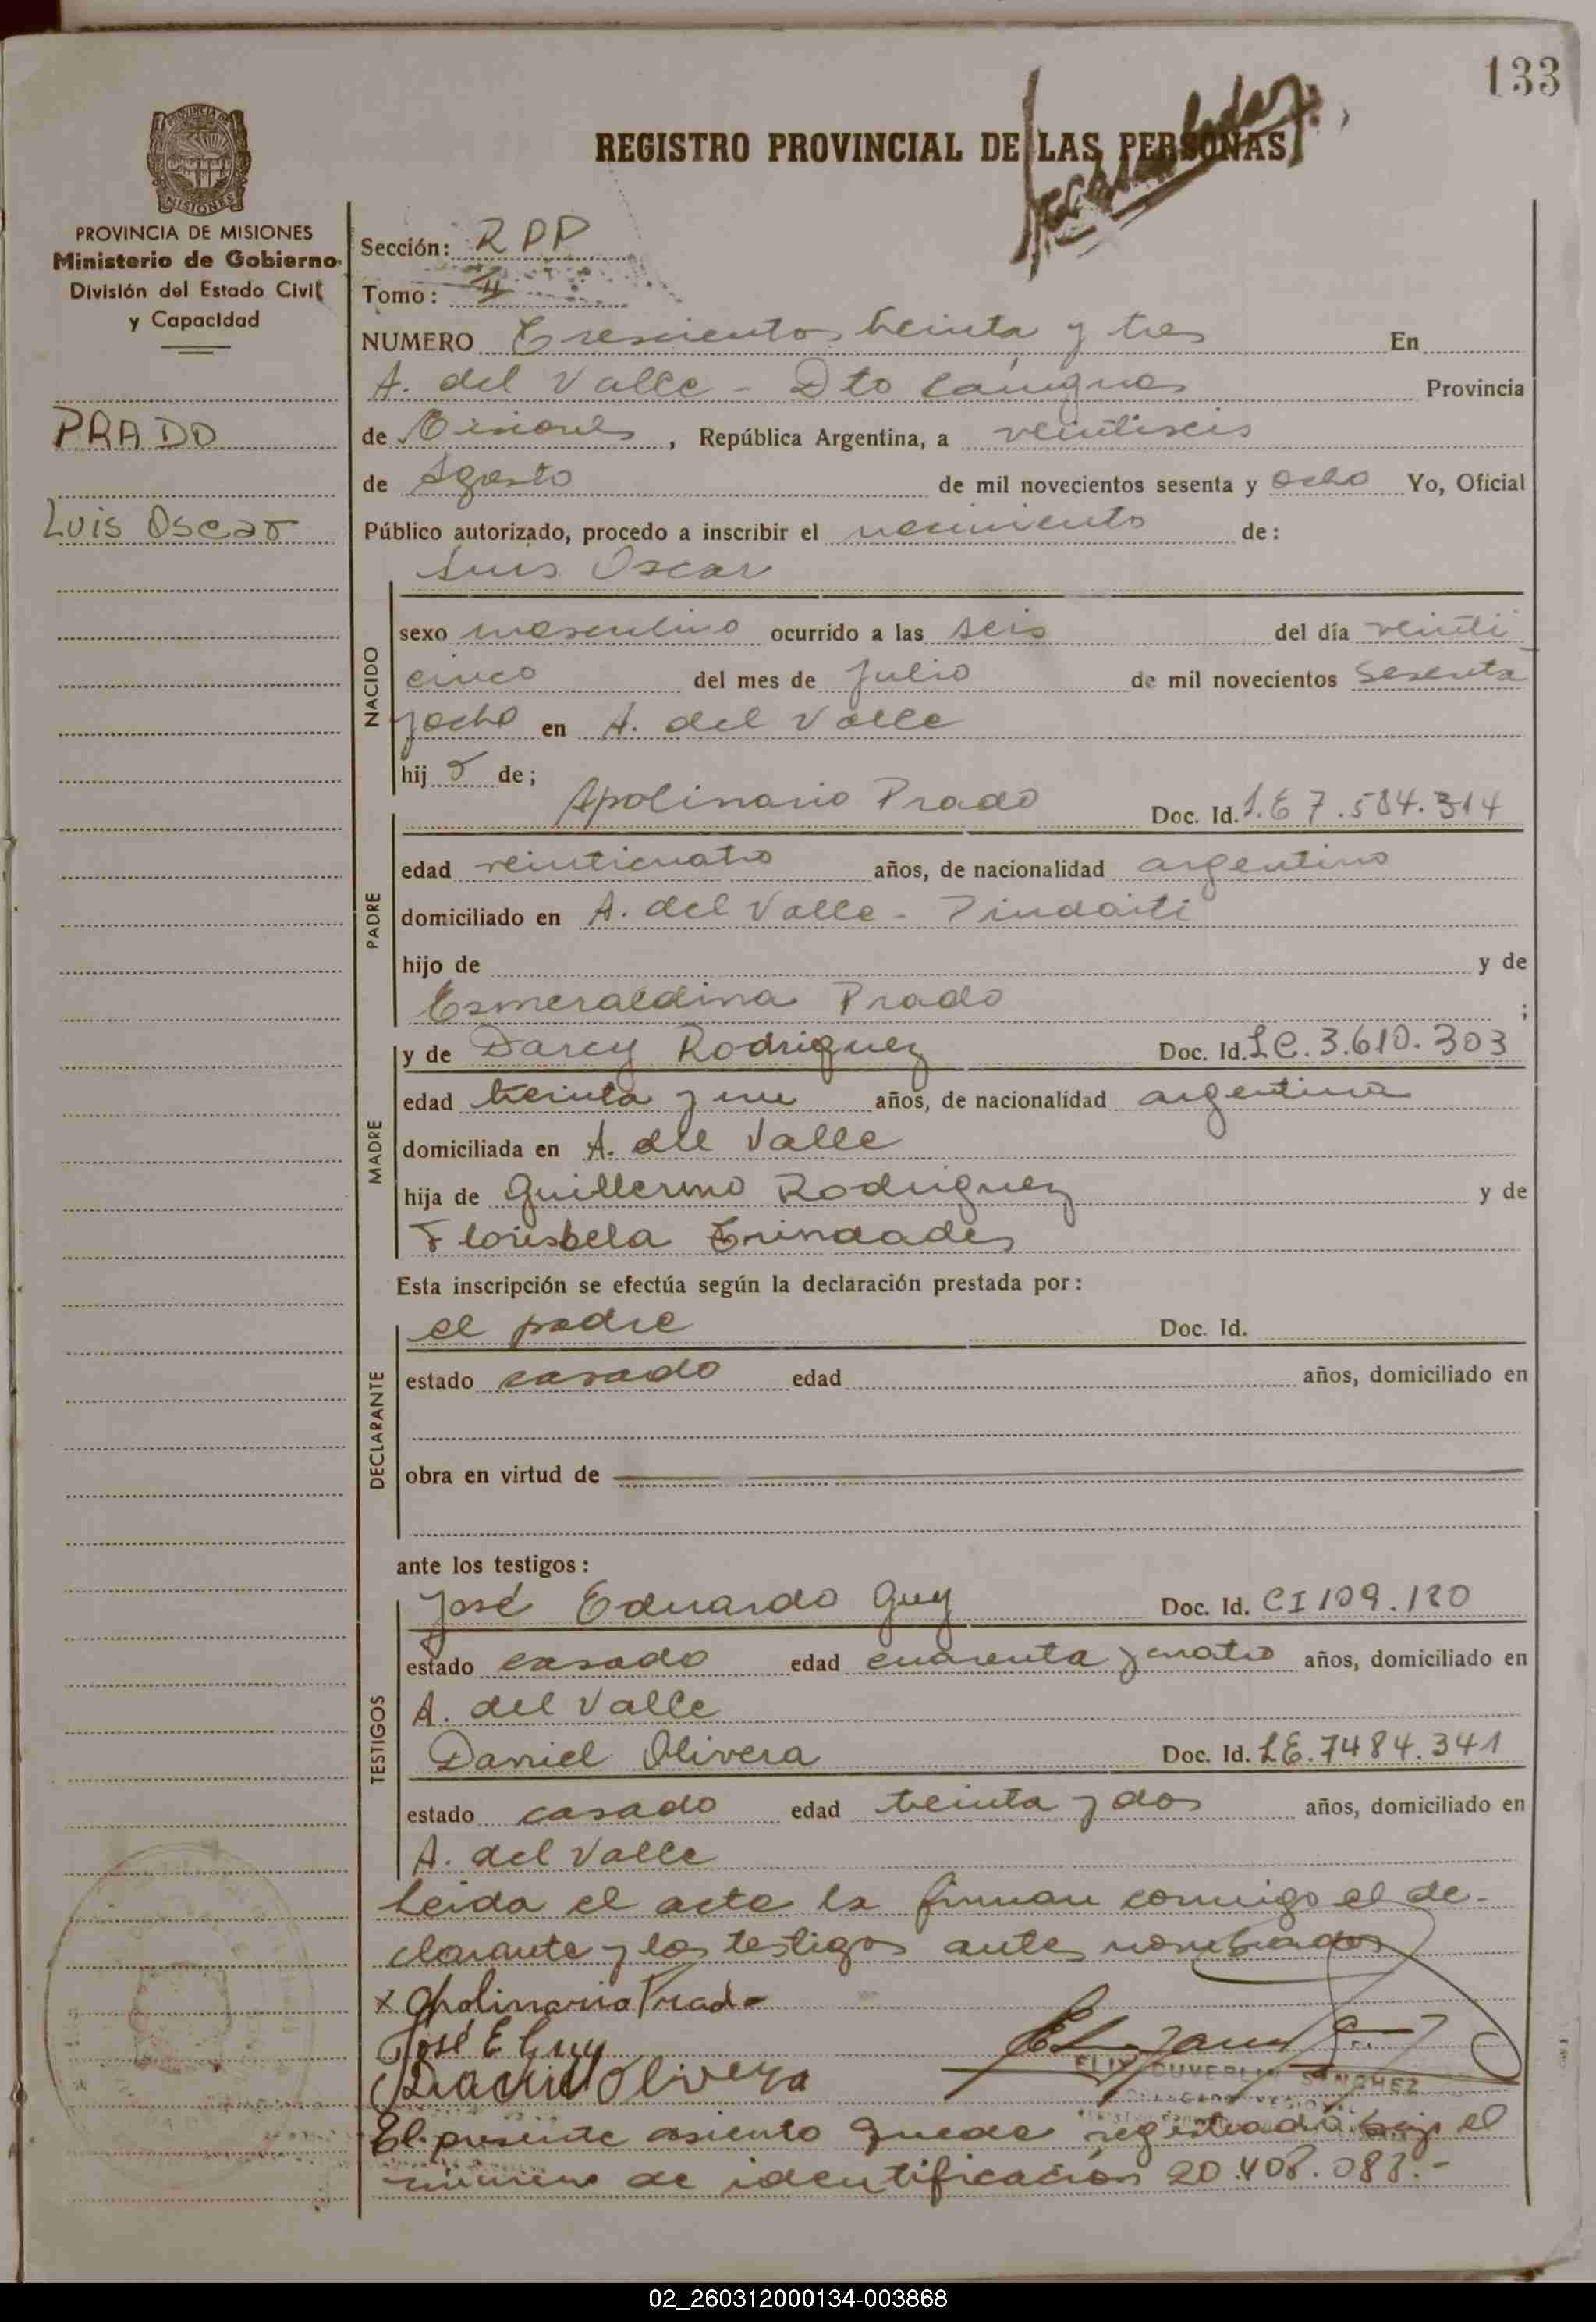 133
REGISTRO PROVINCIAL DE LAS PERSONAS
PROVINCIA DE MISIONES
Ministerio de Gobierno
División del Estado Civil
y Capacidad
PRADO
Luis Oscar
Sección: RPP
Tomo: II
NUMERO Trescientos treinta y tres En
A. del Valle - Dto Cainguas Provincia
de Misiones, República Argentina, a veintiseis
de Agosto de mil novecientos sesenta y ocho Yo, Oficial
Público autorizado, procedo a inscribir el nacimiento de:
Luis Oscar
NACIDO
sexo masculino ocurrido a las seis del día veinti
cinco del mes de Julio de mil novecientos sesenta
y ocho en A. del Valle
hijo de;
PADRE
Apolinario Prado Doc. Id. L.E 7.584.314
edad veinticuatro años, de nacionalidad argentino
domiciliado en A. del Valle - Pindaiti
hijo de y de
Esmeraldina Prado ;
MADRE
y de Darcy Rodriguez Doc. Id. LC. 3.610.303
edad treinta y un años, de nacionalidad argentina
domiciliada en A. del Valle
hija de Guillermo Rodriguez y de
Florisbela Trindades
Esta inscripción se efectúa según la declaración prestada por:
DECLARANTE
el padre Doc. Id.
estado casado edad años, domiciliado en
obra en virtud de
ante los testigos:
TESTIGOS
José Eduardo Guy Doc. Id. CI 109.120
estado casado edad cuarenta y cuatro años, domiciliado en
A. del Valle
Daniel Olivera Doc. Id. LE. 7484.341
estado casado edad treinta y dos años, domiciliado en
A. del Valle
Leida el acta la firman conmigo el de-
clarante y los testigos antes nombrados
x Apolinario Prado
José E Guy
Daniel Olivera
DUVERLI SANCHEZ
El presente asiento queda registrado bajo el
número de identificación 20.408.088.-
02_260312000134-003868